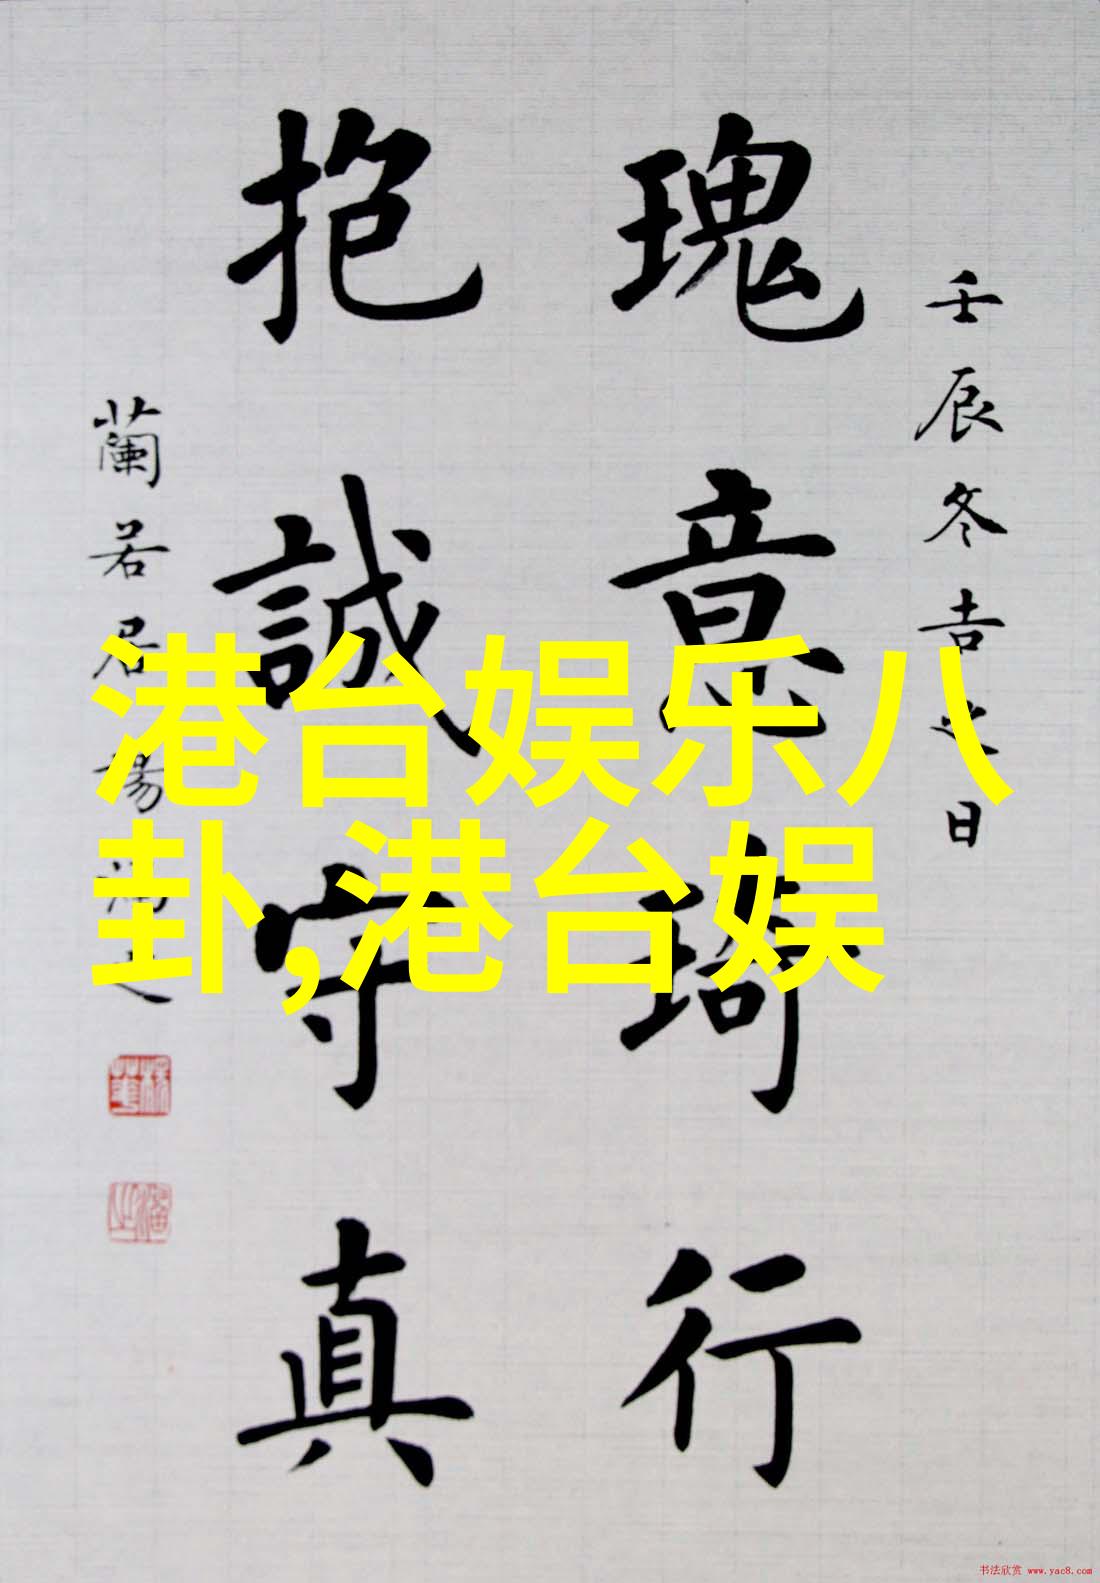 壬辰冬吉之日
瑰意琦行
抱誠守真
蘭若居楊
港台娱乐八
卦,港台娱
书法欣赏 www.yac8.com